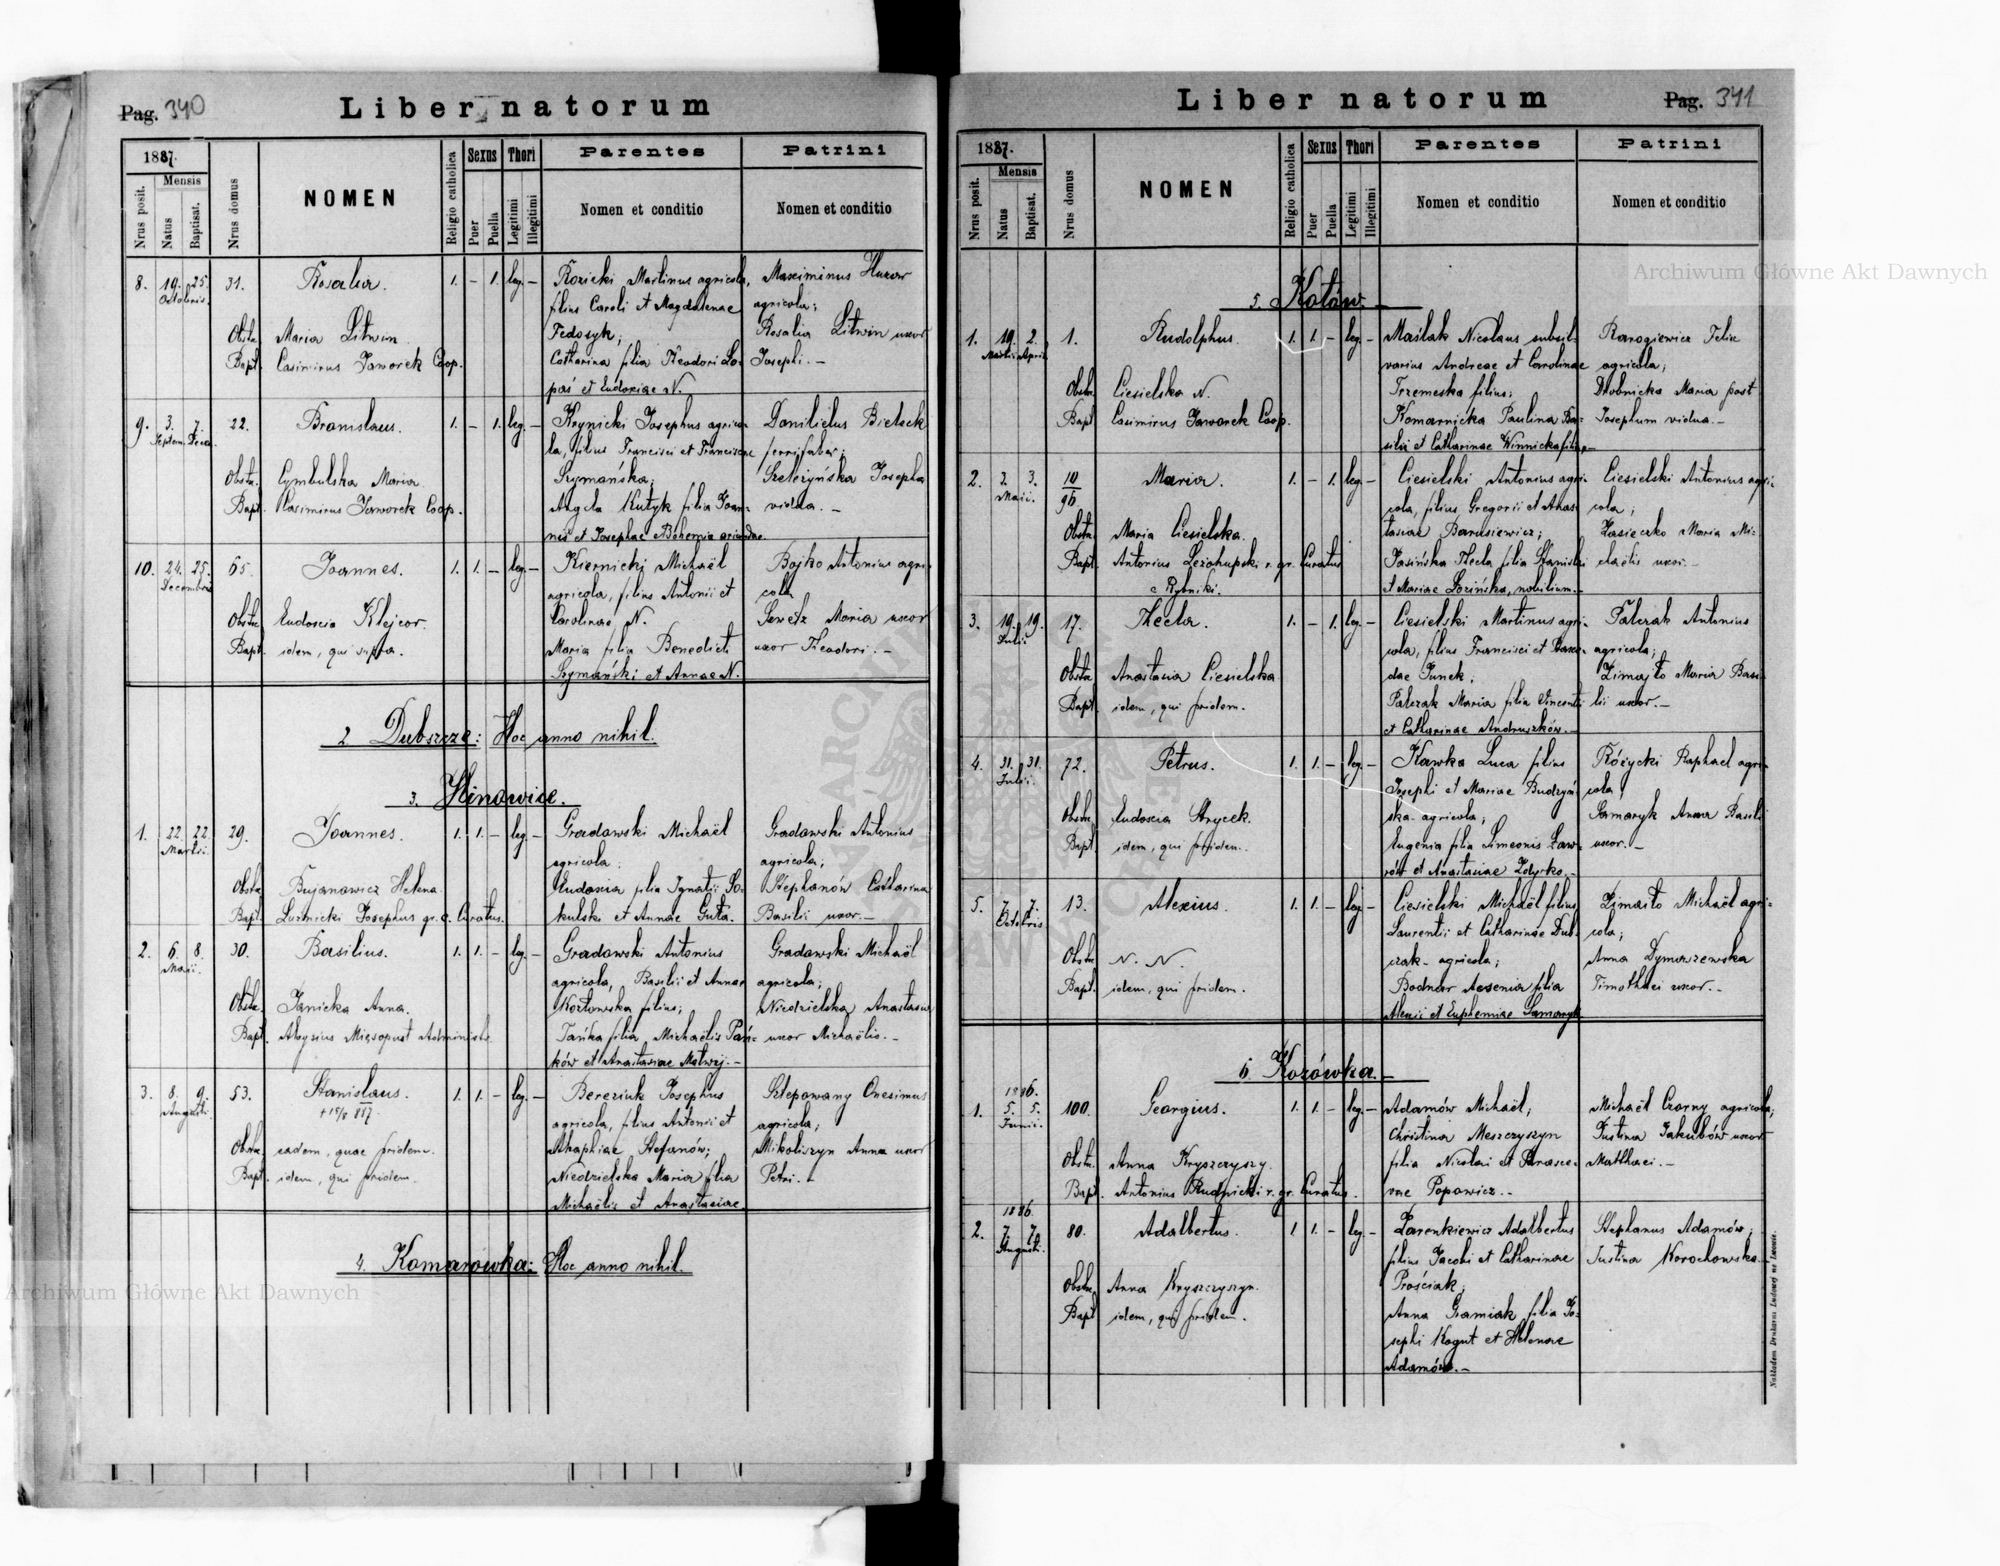 Pag. 340
Liber natorum
1887.
Nrus posit.
Mensis
Natus
Baptisat.
Nrus domus
NOMEN
Religio catholica
Sexus
Puer
Puella
Thori
Legitimi
Illegitimi
Parentes
Nomen et conditio
Patrini
Nomen et conditio
8. 19. 25. 31. Rosalia. 1. - 1. leg. - Rozicki Martinus agricola, Maximinus Huzar
Octobris. filius Caroli et Magdalenae agricola;
Obstx. Maria Litwin. Fedosyk; Rosalia Litwin uxor
Bapt. Casimirus Jaworek Coop. Catharina filia Theodori Ło- Josephi. -
paś et Eudoxiae N.
9. 3. 7. 22. Bronislaus. 1. - 1. leg. - Krynicki Josephus agrico-
la, filius Francisci et Franciscae ferrifaber;
Obstx. Cymbulska Maria Szymańska; Josepha
Bapt. Casimirus Jaworek Coop. Angela Kutyk filia Joan- vidua. -
nis et Josephae e Bohemia
10. 24. 25. 65. Joannes. 1. 1. - leg. - Kiernicki Michaël Bojko Antonius agri-
Decembris agricola, filius Antonii et cola
Obstx. Eudoxia Klejcor. Carolinae N. Maria uxor
Bapt. idem, qui supra. Maria filia Benedicti uxor Theodori. -
Szymański et Annae N.
2 Dubszcze: Hoc anno nihil.
3. Hinowice.
1. 22. 22. 29. Joannes. 1. 1. - leg. - Gradowski Michaël Gradowski Antonius
Martii. agricola. agricola;
Obstx. Bujanowicz Helena Eudoxia filia Ignatii So- Stephanów Catharina
Bapt. Luźnicki Josephus gr. c. Curatus. kulski et Annae Guta. Basilii uxor. -
2. 6. 8. 30. Basilius. 1. 1. - leg. - Gradowski Antonius Gradowski Michaël
Maii. agricola, Basilii et Annae agricola;
Obstx. Janicka Anna. Kozłowska filius; Niedzielska Anastasia
Bapt. Aloysius Mięsopust Administr. Tańka filia Michaëlis Pań- uxor Michaëlis. -
ków et Anastasiae Matwij. -
3. 8. 9. 53. Stanislaus. 1. 1. - leg. - Bereziuk Josephus Sztepowany Onesimus
Augusti. † 15/8 887. agricola, filius Antonii et agricola;
Obstx. eadem, quae pridem. Agaphiae Stefanów; Mikoliszyn Anna uxor
Bapt. idem, qui pridem. Niedzielska Maria filia Petri. -
Michaëlis et Anastasiae.
4. Komarówka: Hoc anno nihil.
Liber natorum
Pag. 341
1887.
Nrus posit.
Mensis
Natus
Baptisat.
Nrus domus
NOMEN
Religio catholica
Sexus
Puer
Puella
Thori
Legitimi
Illegitimi
Parentes
Nomen et conditio
Patrini
Nomen et conditio
5. Kotów.
1. 19. 2. 1. Rudolphus. 1. 1. - leg. - Maślak Nicolaus subsil- Felix
Martii Aprilis varius Andreae et Carolinae agricola;
Obstx. Ciesielska N. Trzemeska filius; Drobnicka Maria post
Bapt. Casimirus Jaworek Coop. Komarnicka Paulina Ba- Josephum vidua. -
silii et Catharinae Winnicka filia. -
2. 2. 3. 10/96 Maria. 1. - 1. leg. - Ciesielski Antonius agri- Ciesielski Antonius agri-
Maii. cola, filius Gregorii et Anas- cola;
Obstx. Maria Ciesielska. tasiae Barusiewicz; Zasieczko Maria Mi-
Bapt. Antonius Leżohupski r. gr. Curatus Jasińska Thecla filia Stanislai chaëlis uxor. -
e Rybniki. et Mariae Łozińska, nobilium. -
3. 19. 19. 17. Thecla. 1. - 1. leg. - Ciesielski Martinus agri- Palczak Antonius
Julii cola, filius Francisci et agricola;
Obstx. Anastasia Ciesielska Junek. Zimajło Maria Basi-
Bapt. idem, qui pridem. Palczak Maria filia Vincentii lii uxor. -
et Catharinae Andruszków. -
4. 31. 31. 72. Petrus. 1. 1. - leg. - Kawka Luca filius Różycki Raphael agri-
Julii. Josephi et Mariae Budzyń- cola
Obstx. Eudoxia Hrycek. ska - agricola; Samaryk Anna Basilii
Bapt. idem, qui pridem. Eugenia filia Simeonis Ław- uxor. -
rów et Anastasiae Zdyrko. -
5. 7. 7. 13. Alexius. 1. 1. - leg. - Ciesielski Michaël filius Zimajło Michaël agri-
Octobris Laurentii et Catharinae Dub- cola;
Obstx. N. N. czak - agricola; Anna Dymaszewska
Bapt. idem, qui pridem. Bodnar Axenia filia Timothaei uxor. -
Alexii et Euphemiae Samaryk.
6. Kozówka. -
1886.
1. 5. 5. 100. Georgius. 1. 1. - leg. - Adamów Michaël; Michaël Czarny agricola;
Junii. Christina Meszczyszyn Justina Jakubów uxor
Obstx. Anna Kryszczyszy. filia Nicolai et Parasce- Matthaei. -
Bapt. Antonius Rudnicki r. gr. Curatus. vae Popowicz. -
1886.
2. 7. 7. 80. Adalbertus. 1 1. - leg. - Zarenkiewicz Adalbertus Stephanus Adamów;
Augusti. filius Jacobi et Catharinae Justina Korochowska. -
Obstx. Anna Kryszczyszyn. Prościak;
Bapt. idem, qui pridem. Anna Gamiak filia Jo-
sephi Kogut et Helenae
Adamów. -
Nakładem Drukarni Ludowej we Lwowie.
Archiwum Główne Akt Dawnych
Archiwum Główne Akt Dawnych